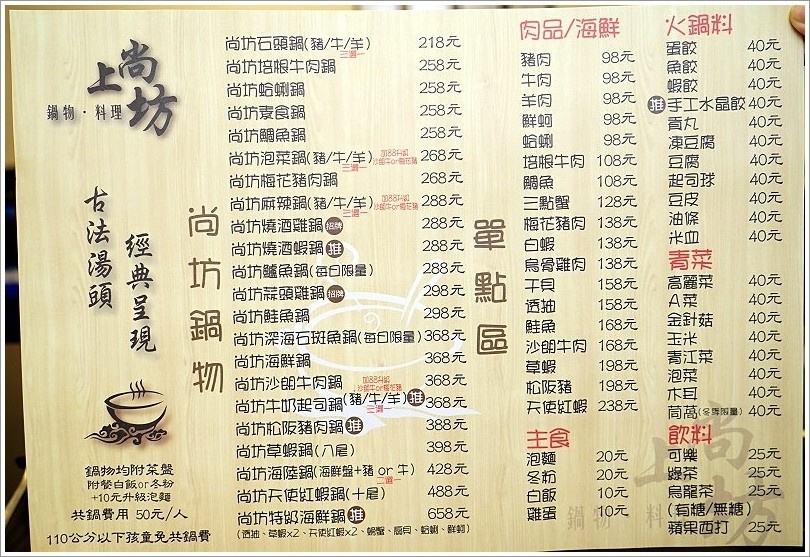 上尚坊
鍋物・料理
古法湯頭
經典呈現
鍋物均附菜盤
附餐白飯or冬粉
+10元升級泡麵
共鍋費用 50元/人
110公分以下孩童免共鍋費
尚坊鍋物
尚坊石頭鍋(豬/牛/羊) 218元
三選一
尚坊培根牛肉鍋 258元
尚坊蛤蜊鍋 258元
尚坊素食鍋 258元
尚坊鯛魚鍋 258元
尚坊泡菜鍋(豬/牛/羊) 268元
三選一
加88升級
沙朗牛or梅花豬
尚坊梅花豬肉鍋 268元
尚坊麻辣鍋(豬/牛/羊) 288元
三選一
加88升級
沙朗牛or梅花豬
尚坊燒酒雞鍋 招牌 288元
尚坊燒酒蝦鍋 推 288元
尚坊鱸魚鍋(每日限量) 288元
尚坊蒜頭雞鍋 招牌 298元
尚坊鮭魚鍋 298元
尚坊深海石斑魚鍋(每日限量) 368元
尚坊海鮮鍋 368元
尚坊沙朗牛肉鍋 368元
尚坊牛奶起司鍋(豬/牛/羊) 推 368元
三選一
加88升級
沙朗牛or梅花豬
尚坊松阪豬肉鍋 推 388元
尚坊草蝦鍋(八尾) 398元
尚坊海陸鍋(海鮮盤+豬 or 牛) 428元
二選一
尚坊天使紅蝦鍋(十尾) 488元
尚坊特級海鮮鍋 推 658元
(透抽、草蝦x2、天使紅蝦x2、螃蟹、扇貝、蛤蜊、鮮蚵)
單點區
肉品/海鮮
豬肉 98元
牛肉 98元
羊肉 98元
鮮蚵 98元
蛤蜊 98元
培根牛肉 108元
鯛魚 108元
三點蟹 128元
梅花豬肉 138元
白蝦 138元
烏骨雞肉 138元
干貝 158元
透抽 158元
鮭魚 168元
沙朗牛肉 168元
草蝦 198元
松阪豬 198元
天使紅蝦 238元
主食
泡麵 20元
冬粉 20元
白飯 10元
雞蛋 10元
火鍋料
蛋餃 40元
魚餃 40元
蝦餃 40元
推 手工水晶餃 40元
貢丸 40元
凍豆腐 40元
豆腐 40元
起司球 40元
豆皮 40元
油條 40元
米血 40元
青菜
高麗菜 40元
A菜 40元
金針菇 40元
玉米 40元
青江菜 40元
泡菜 40元
木耳 40元
茼蒿(冬季限量) 40元
飲料
可樂 25元
綠茶 25元
烏龍茶 25元
(有糖/無糖)
蘋果西打 25元
上尚坊
鍋物・料